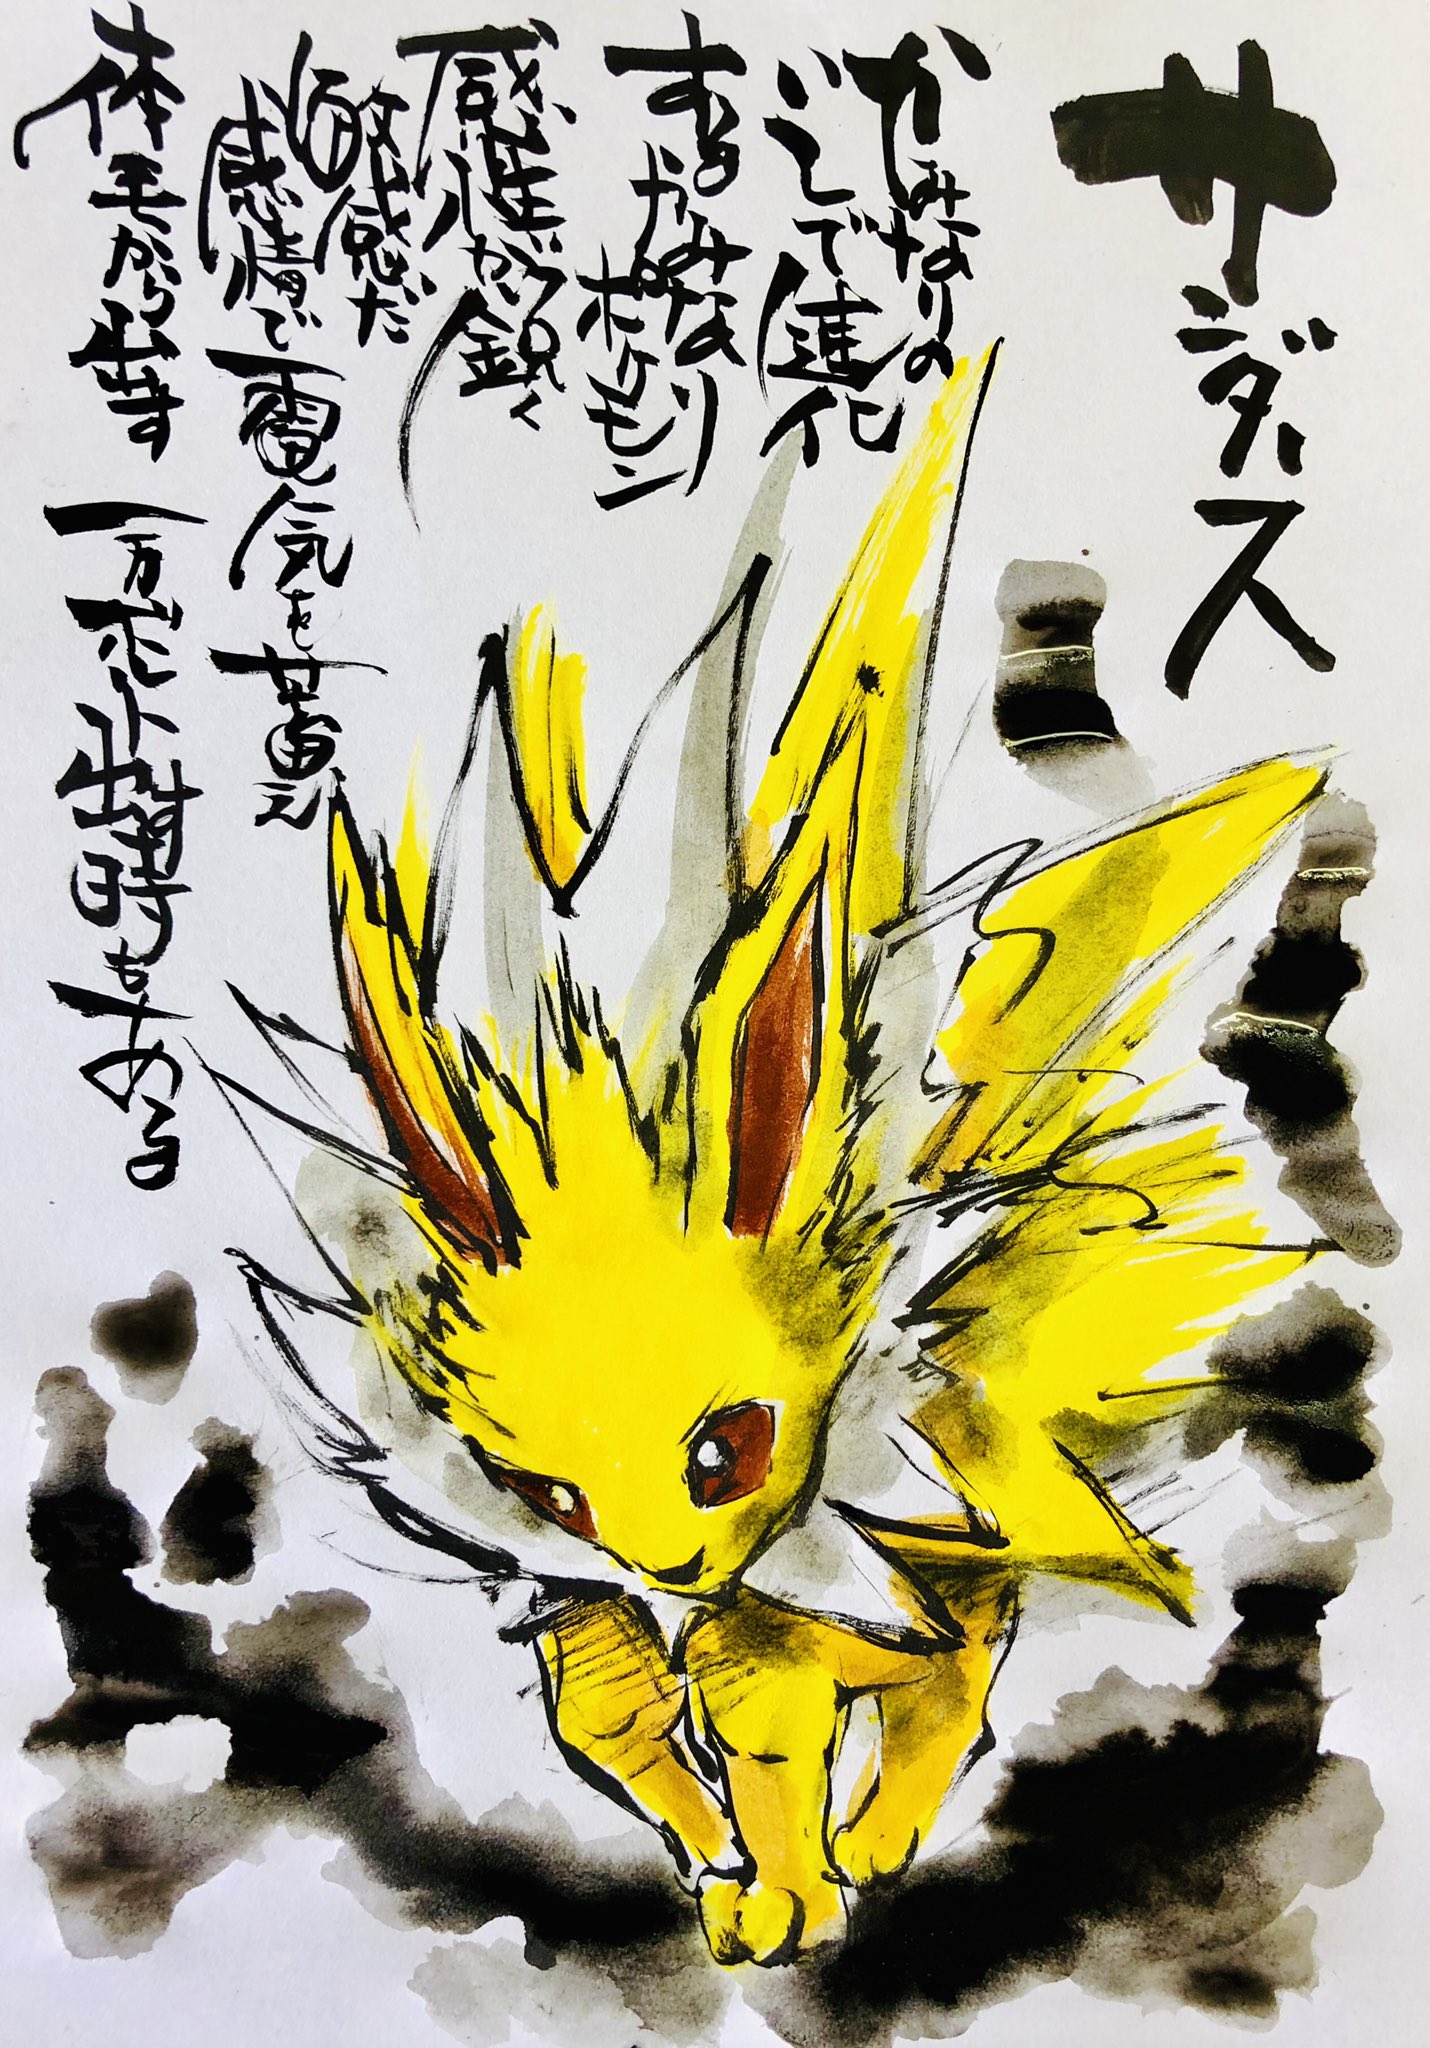 サンダース
かみなりの
いしで進化
するかみなり
ポケモン
感性が鋭く
敏感だ
感情で電気を蓄え
体毛から出す一万ボルト出す時もある